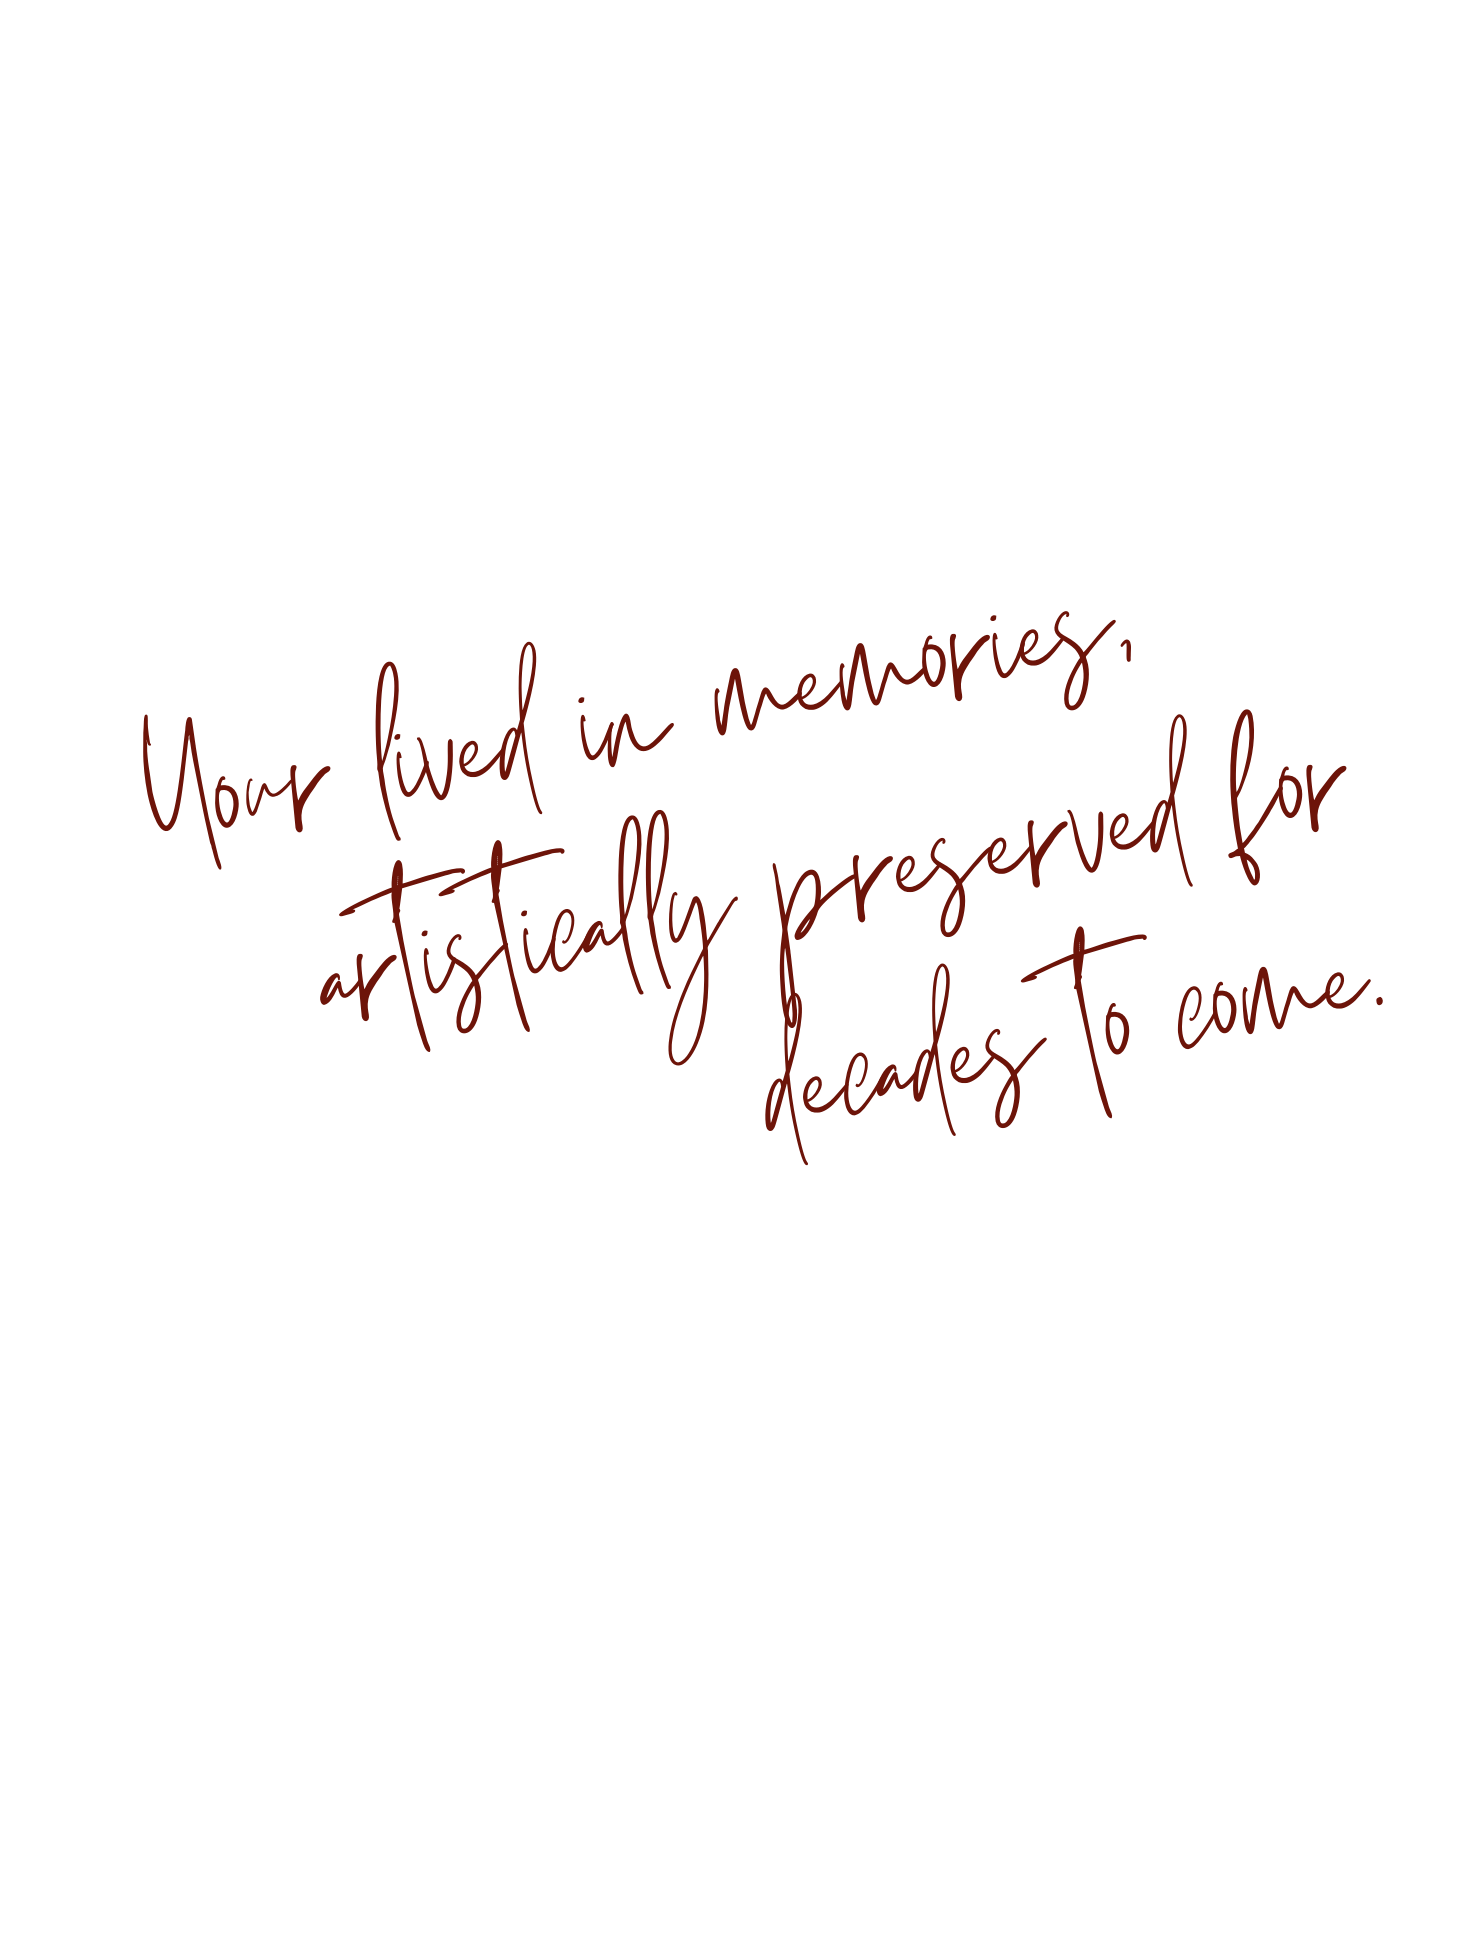 Your lived in memories,
artistically preserved for
decades to come.